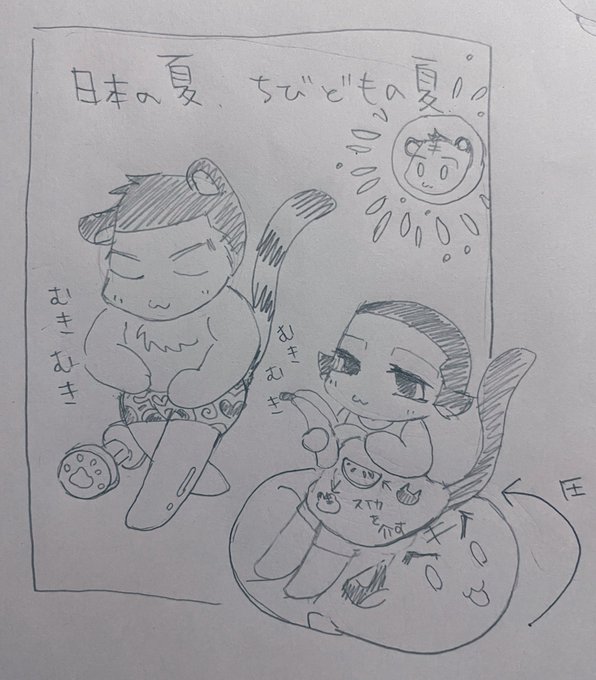 日本の夏、ちびどもの夏
むきむき
むきむき
スイカ
を
介す
圧